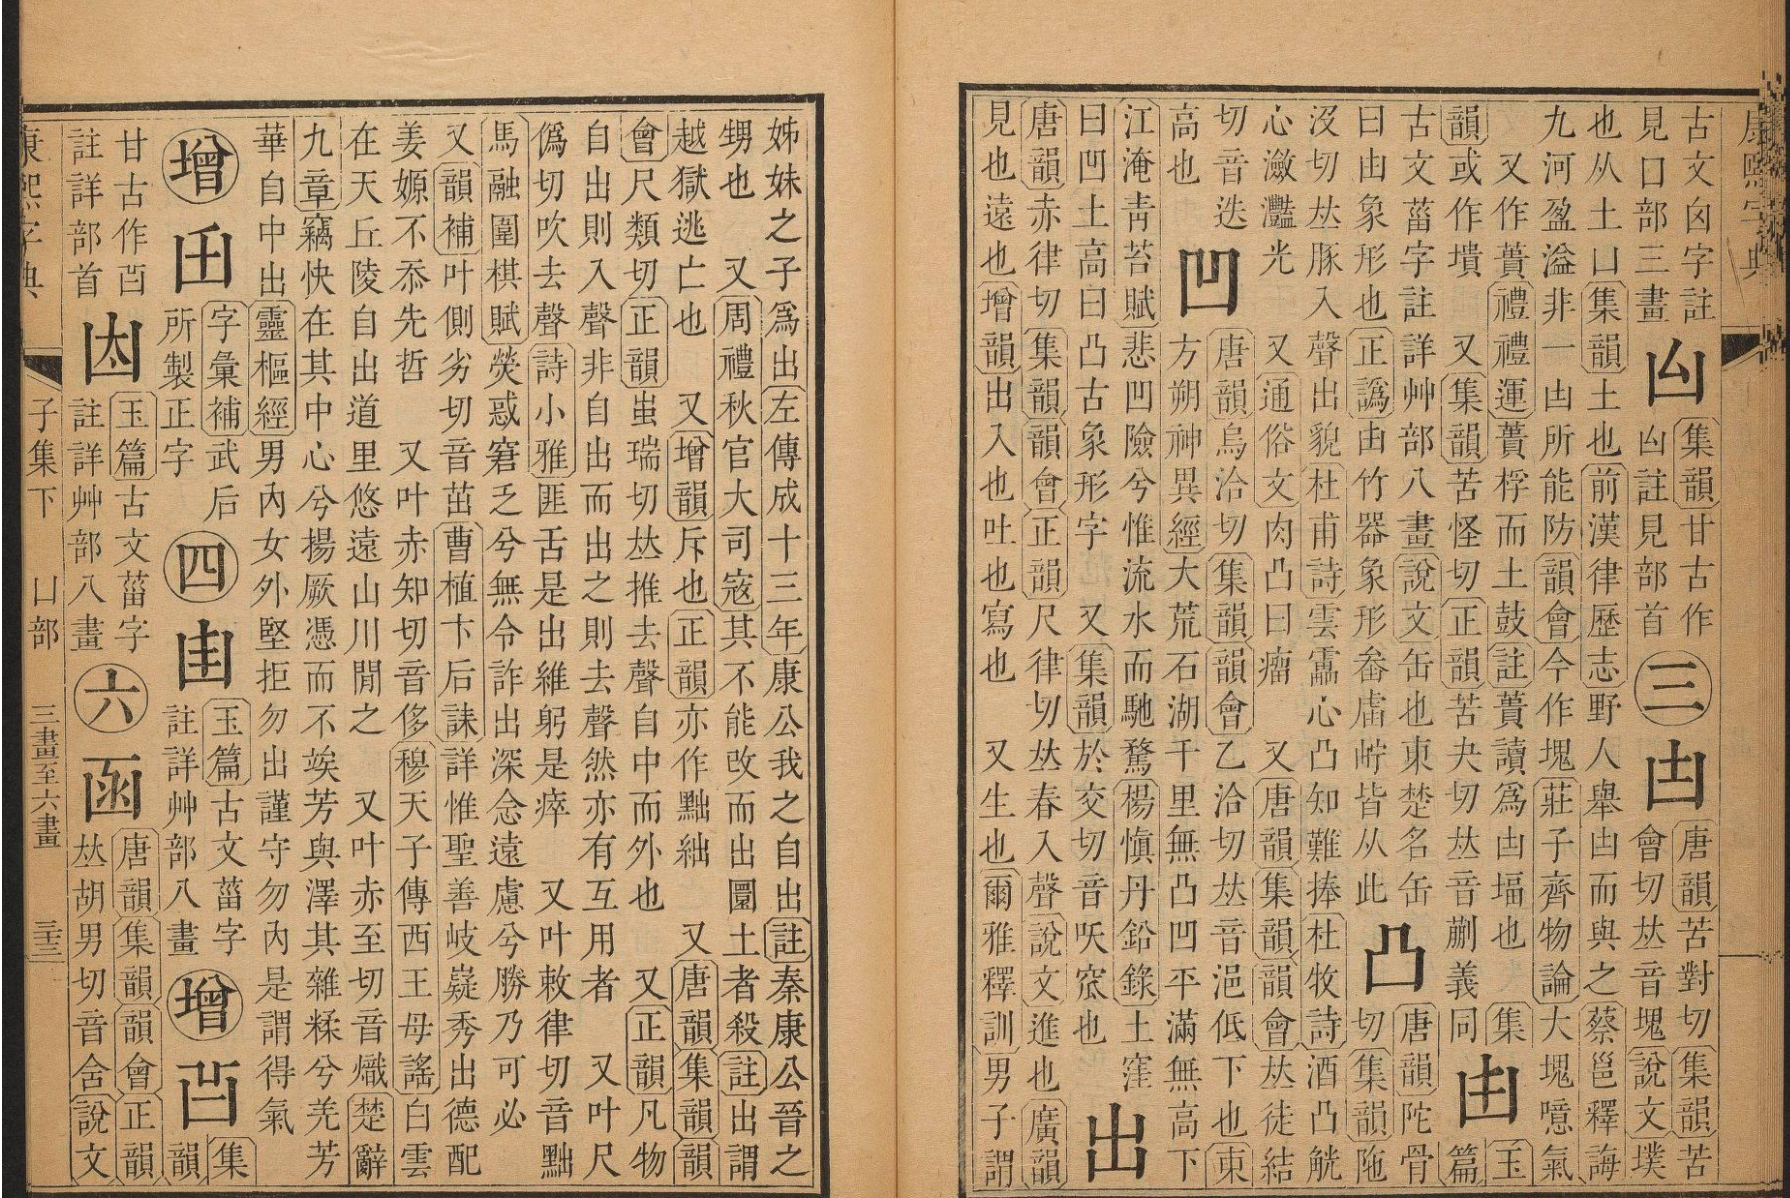 康熙字典
古文囟字註
見口部三畫
凶
集韻甘古作
凵註見部首
三
凷
唐韻苦對切集韻苦
會切𠀤音塊說文墣
也从土凵集韻土也前漢律歷志野人舉凷而與之蔡邕釋誨
九河盈溢非一凷所能防韻會今作塊莊子齊物論大塊噫氣
又作蕢禮禮運蕢桴而土鼓註蕢讀爲凷堛也集
韻或作墳又集韻苦怪切正韻苦夬切𠀤音蒯義同
甴
玉
篇
古文菑字註詳艸部八畫說文缶也東楚名缶
曰甴象形也正譌甴竹器象形畚虘㟁皆从此
凸
唐韻陀骨
切集韻陁
沒切𠀤豚入聲出貌杜甫詩雲霱心凸知難捧杜牧詩酒凸觥
心瀲灩光又通俗文肉凸曰瘤又唐韻集韻韻會𠀤徒結
切音迭
高也
凹
唐韻烏洽切集韻韻會乙洽切𠀤音浥低下也東
方朔神異經大荒石湖千里無凸凹平滿無高下
江淹靑苔賦悲凹險兮惟流水而馳騖楊愼丹鉛錄土窪
曰凹土高曰凸古象形字又集韻於交切音㕭窊也
出
唐韻赤律切集韻韻會正韻尺律切𠀤春入聲說文進也廣韻
見也遠也增韻出入也吐也寫也又生也爾雅釋訓男子謂
姊妹之子爲出左傳成十三年康公我之自出註秦康公晉之
甥也又周禮秋官大司寇其不能改而出圜土者殺註出謂
越獄逃亡也又增韻斥也正韻亦作黜絀又唐韻集韻韻
會尺類切正韻蚩瑞切𠀤推去聲自中而外也又正韻凡物
自出則入聲非自出而出之則去聲然亦有互用者又叶尺
僞切吹去聲詩小雅匪舌是出維躬是瘁又叶敕律切音黜
馬融圍棋賦熒惑窘乏兮無令詐出深念遠慮兮勝乃可必
又韻補叶側劣切音茁曹植卞后誄詳惟聖善岐嶷秀出德配
姜嫄不忝先哲又叶赤知切音侈穆天子傳西王母謠白雲
在天丘陵自出道里悠遠山川閒之又叶赤至切音熾楚辭
九章竊快在其中心兮揚厥憑而不竢芳與澤其雜糅兮羌芳
華自中出靈樞經男內女外堅拒勿出謹守勿內是謂得氣
增
𠙺
字彙補武后
所製正字
四
𠙹
玉篇古文菑字
註詳艸部八畫
增
凿
集
韻
甘古作𠙼
註詳部首
凼
玉篇古文菑字
註詳艸部八畫
六
函
唐韻集韻韻會正韻
𠀤胡男切音含說文
康熙字典
子集下
凵部
三畫至六畫
三十三